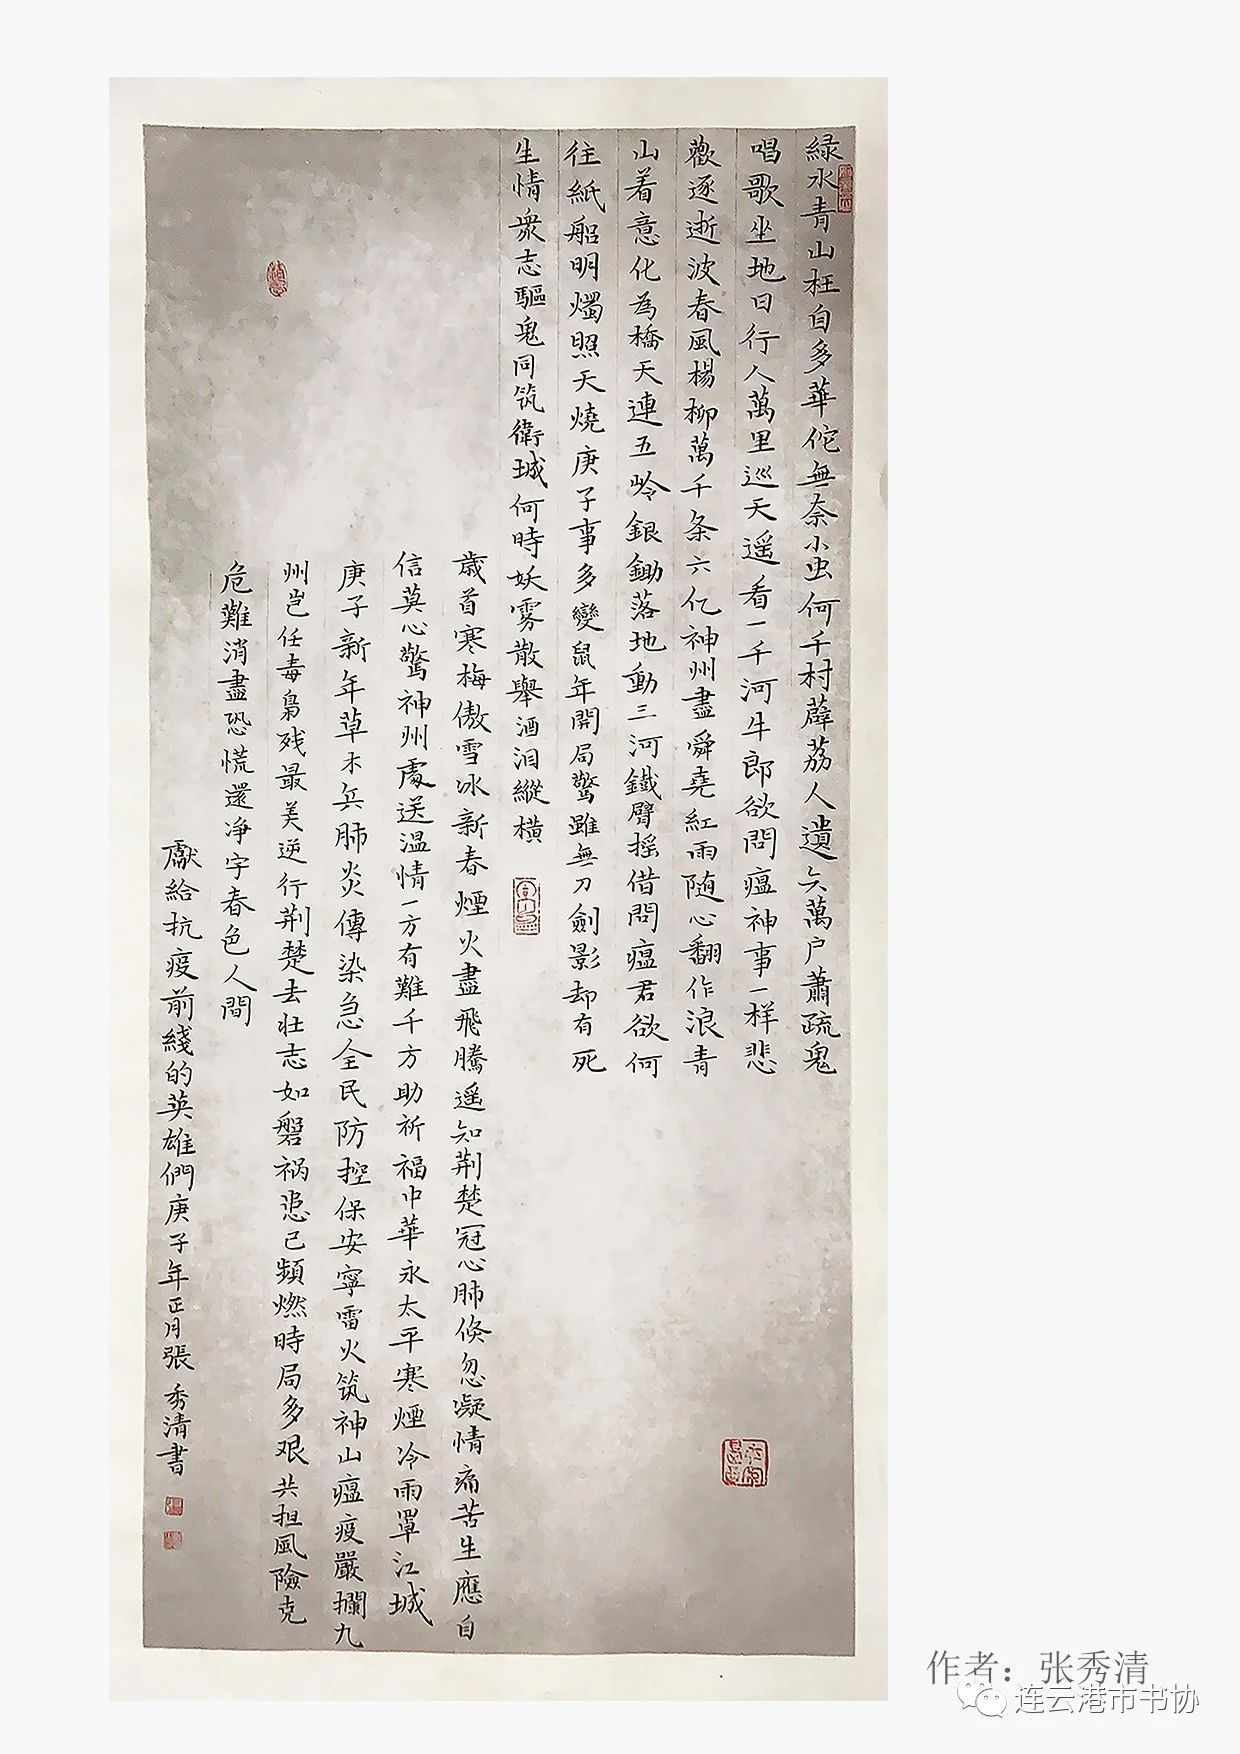 緑水青山枉自多華佗無奈小虫何千村薜荔人遺矢萬户蕭疏鬼
唱歌坐地日行八萬里巡天遥看一千河牛郎欲問瘟神事一样悲
歡逐逝波春風楊柳萬千条六亿神州盡舜堯紅雨随心翻作浪青
山着意化為橋天連五岭銀鋤落地動三河鐵臂摇借問瘟君欲何
往紙船明燭照天燒庚子事多變鼠年開局驚雖無刀劍影却有死
生情衆志驅鬼同筑衛城何時妖雾散舉酒泪縱横
歳首寒梅傲雪冰新春煙火盡飛騰遥知荆楚冠心肺倏忽凝情痛苦生應自
信莫心驚神州處處送温情一方有難千方助祈福中華永太平寒煙冷雨罩江城
庚子新年草木兵肺炎傳染急全民防控保安寧雷火筑神山瘟疫嚴攔九
州岂任毒梟残最美逆行荆楚去壮志如磐祸患已頻燃時局多艰共担風險克
危難消盡恐慌還净宇春色人間
獻給抗疫前綫的英雄們庚子年正月張秀清書
作者：张秀清
连云港市书协